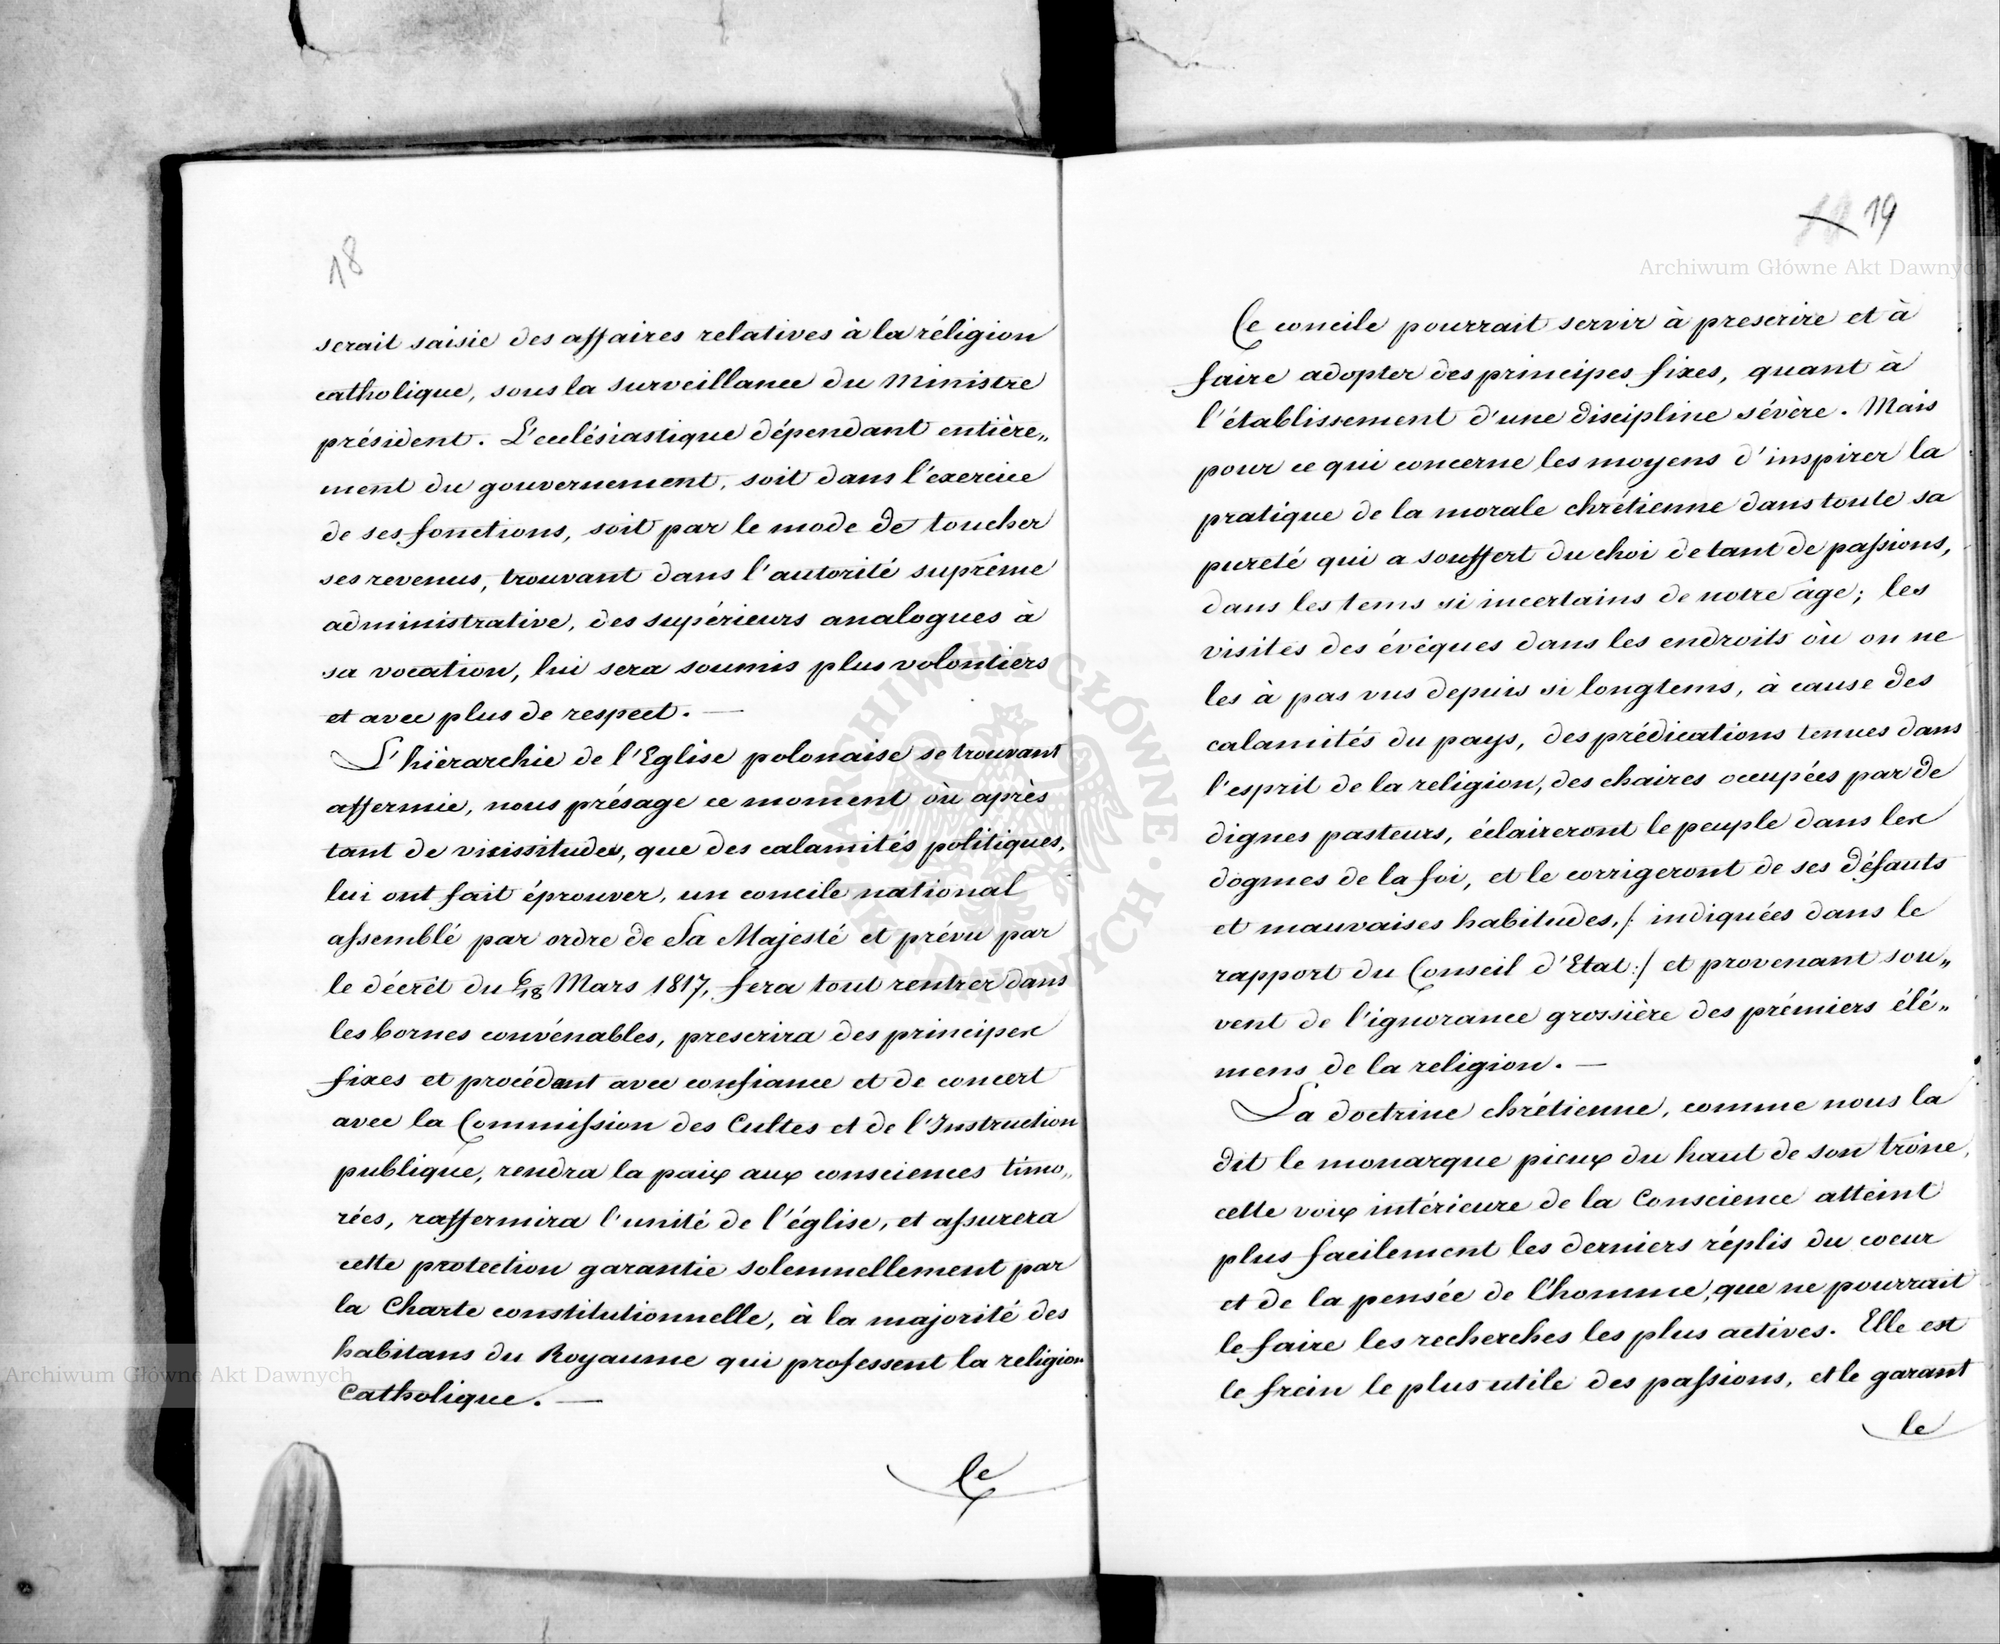 18
serait saisie des affaires relatives à la réligion
catholique, sous la surveillance du Ministre
président. L'ecclésiastique dépendant entière„
ment du gouvernement, soit dans l'exercice
de ses fonctions, soit par le mode de toucher
ses revenus, trouvant dans l'autorité suprême
administrative, des supérieurs analogues à
sa vocation, lui sera soumis plus volontiers
et avec plus de respect. —
L'hiërarchie de l'Eglise polonaise se trouvant
affermie, nous présage ce moment où après
tant de vicissitudes, que des calamités politiques,
lui ont fait éprouver, un concile national
assemblé par ordre de Sa Majesté et prévu par
le décrêt du 6/18 Mars 1817, fera tout rentrer dans
les bornes convénables, prescrira des principes
fixes et procédant avec confiance et de concert
avec la Commission des Cultes et de l'Instruction
publique, rendra la paix aux consciences timo„
rées, raffermira l'unité de l'église, et assurera
cette protection garantie solemnellement par
la Charte constitutionnelle, à la majorité des
habitans du Royaume qui professent la religion
Catholique. —
Ce
19
Ce concile pourrait servir à prescrire et à
faire adopter des principes fixes, quant à
l'établissement d'une discipline sévère. Mais
pour ce qui concerne les moyens d'inspirer la
pratique de la morale chrétienne dans toute sa
pureté qui a souffert du choi de tant de passions,
dans les tems si incertains de notre âge; les
visites des évêques dans les endroits où on ne
les à pas vus depuis si longtems, à cause des
calamités du pays, des prédications tenues dans
l'esprit de la religion, des chaires occupées par de
dignes pasteurs, éclaireront le peuple dans les
dogmes de la foi, et le corrigeront de ses défauts
et mauvaises habitudes, /: indiquées dans le
rapport du Conseil d'Etat :/ et provenant sou„
vent de l'ignorance grossière des prémiers élé„
mens de la religion. —
La doctrine chrétienne, comme nous la
dit le monarque pieux du haut de son trône,
cette voix intérieure de la Conscience atteint
plus facilement les derniers réplis du coeur
et de la pensée de l'homme, que ne pourrait
le faire les recherches les plus actives. Elle est
le frein le plus utile des passions, et le garant
le
Archiwum Główne Akt Dawnych
Archiwum Główne Akt Dawnych
ARCHIWUM GŁÓWNE AKT DAWNYCH